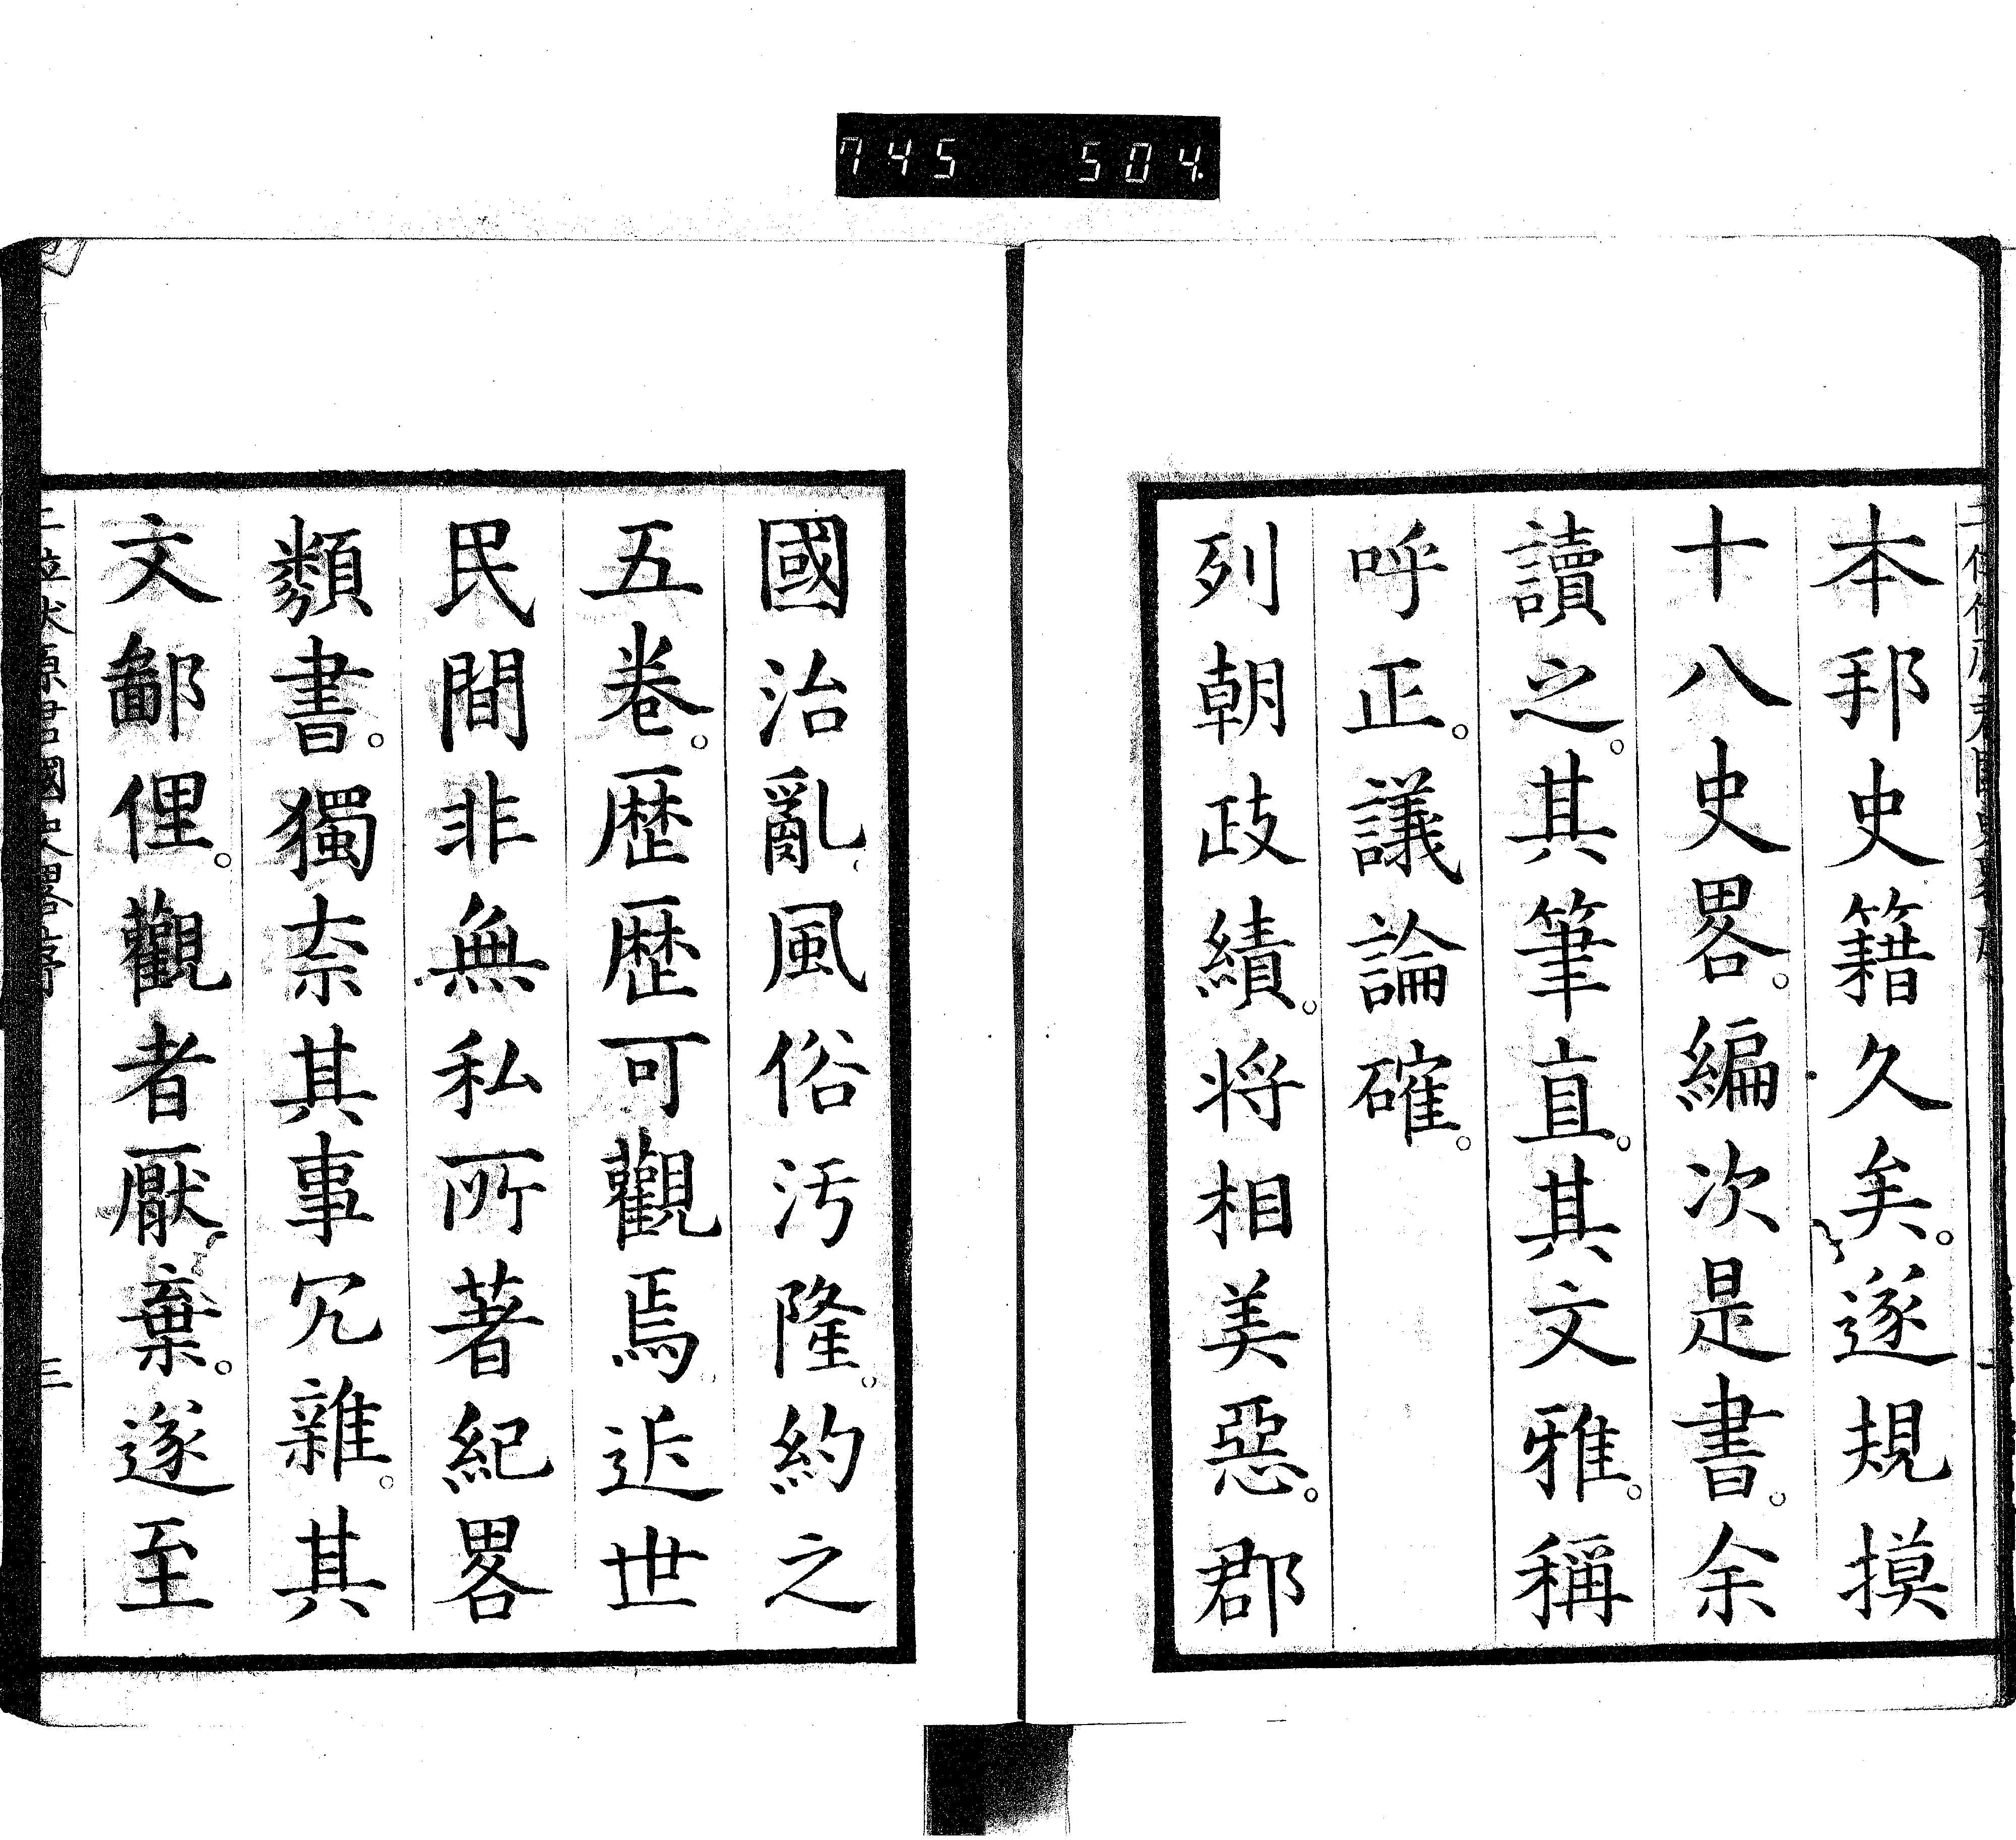 745 504.
本邦史籍久矣。遂規摸
十八史畧。編次是書。余
讀之。其筆直。其文雅。稱
呼正。議論確。
列朝政績。将相美惡。郡
國治亂風俗汚隆。約之
五卷。歴歴可觀焉。近世
民間非無私所著紀畧
類書。獨柰其事冗雜。其
文鄙俚。觀者厭棄。遂至
國史畧序
三